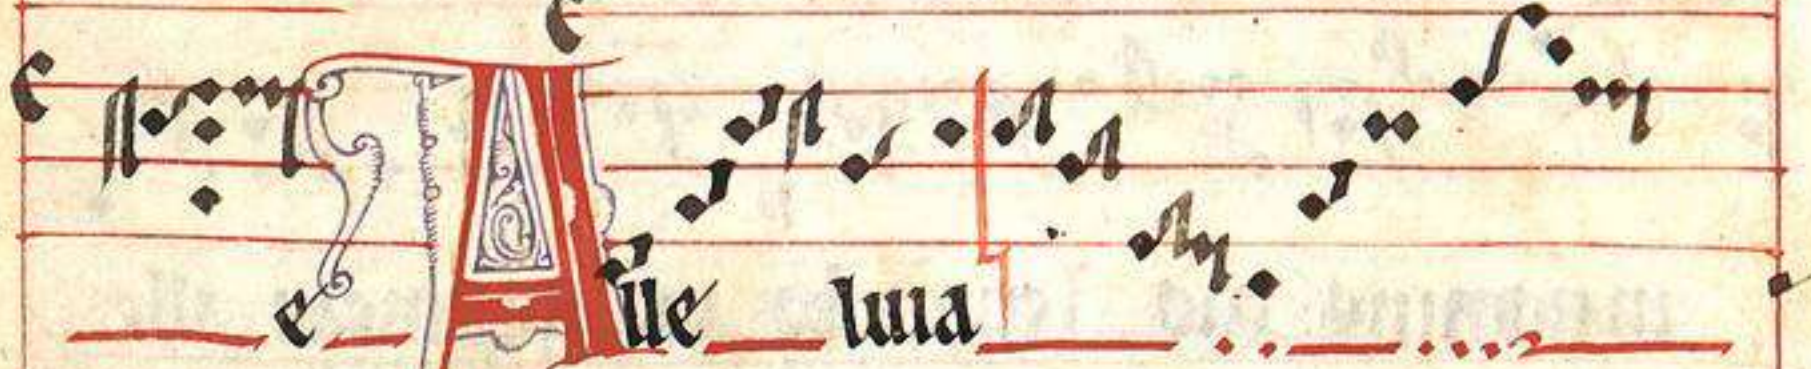 e Alle luia